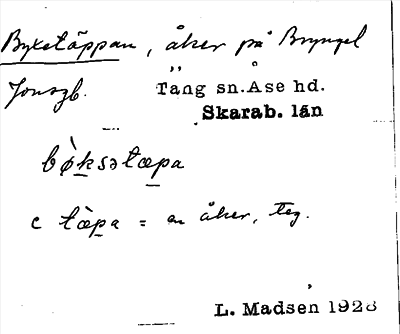 Byxetäppan, åker på Bryngel
Jonsgb. Täng sn. Åse hd.
Skarab. län
bø̀ksətæpa
c tæ̀pa = en åker, teg.
L. Madsen 1928